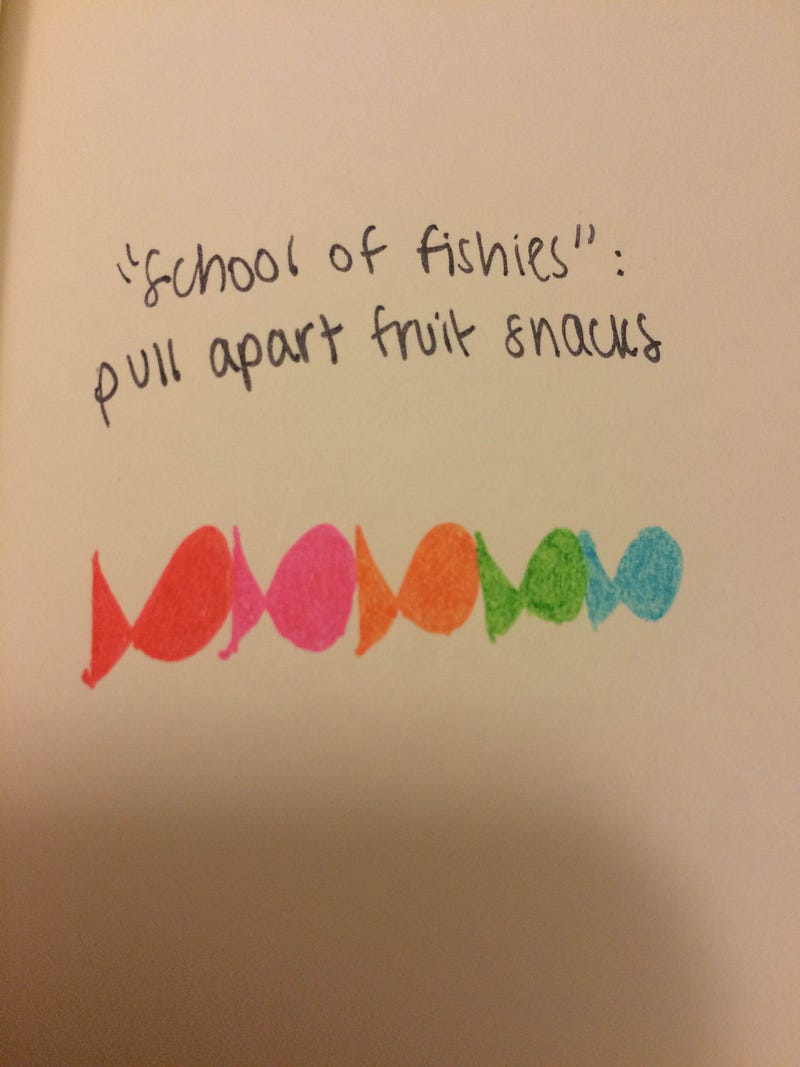 "School of fishies":
pull apart fruit snacks